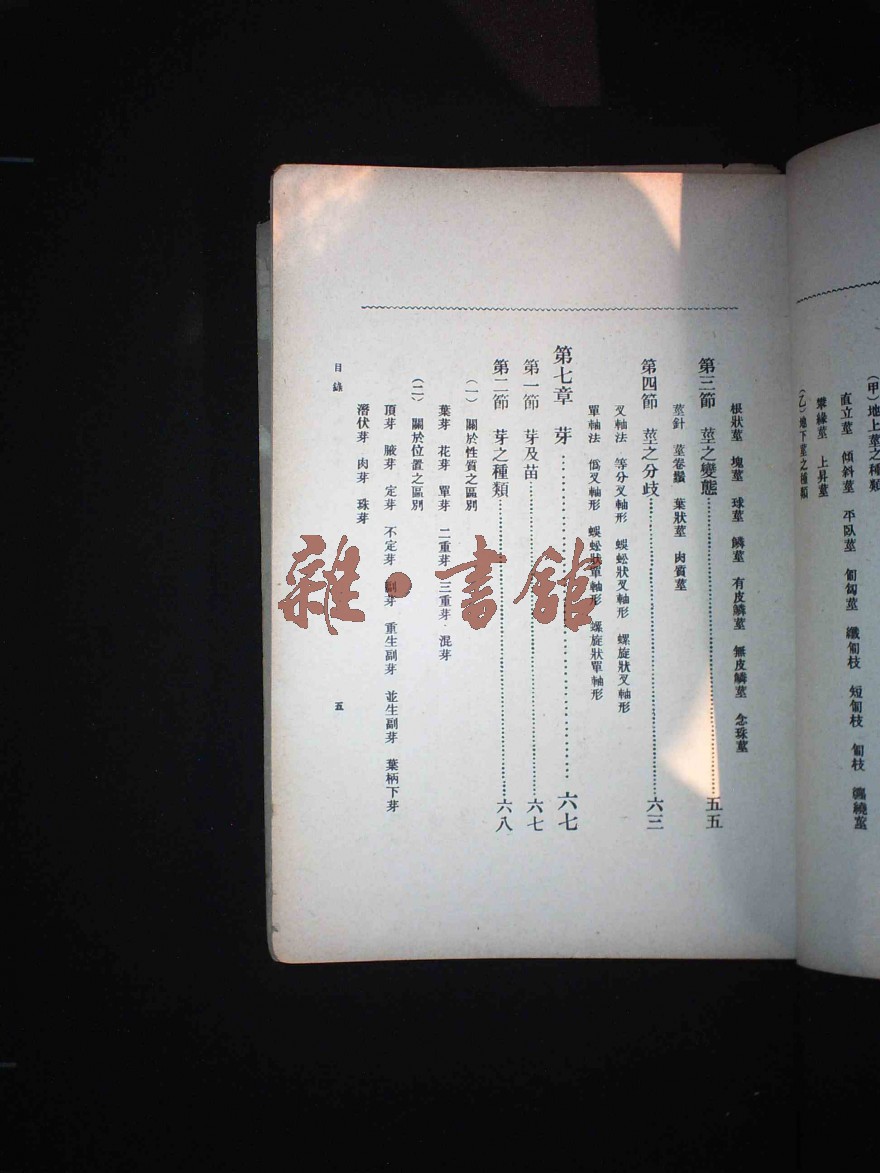 (甲)地上莖之種類
直立莖 傾斜莖 平臥莖 匍匐莖 纖匐枝 短匐枝 匐枝 纏繞莖
攀緣莖 上昇莖
(乙)地下莖之種類
根狀莖 塊莖 球莖 鱗莖 有皮鱗莖 無皮鱗莖 念珠莖
第三節 莖之變態……五五
莖針 莖卷鬚 葉狀莖 肉質莖
第四節 莖之分歧……六三
叉軸法 等分叉軸形 蜈蚣狀叉軸形 螺旋狀叉軸形
單軸法 僞叉軸形 蜈蚣狀單軸形 螺旋狀單軸形
第七章 芽……六七
第一節 芽及苗……六七
第二節 芽之種類……六八
(一) 關於性質之區別
葉芽 花芽 單芽 二重芽 三重芽 混芽
(二) 關於位置之區別
頂芽 腋芽 定芽 不定芽 副芽 重生副芽 並生副芽 葉柄下芽
潛伏芽 肉芽 珠芽
目錄
五
雜·書館